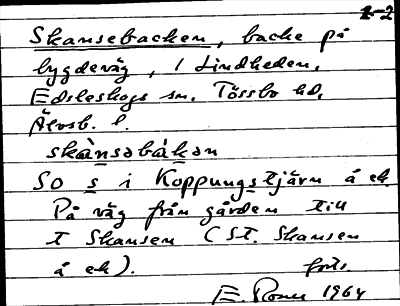 1-2
Skansebacken, backe på
bygdeväg, i Lindheden,
Edsleskogs sn. Tössbo hd,
Älvsb. l.
skànsəbàkən
So s i Koppungstjärn å ek.
På väg från gården till
t Skansen (St. Skansen
å ek). forts.
E. 1964